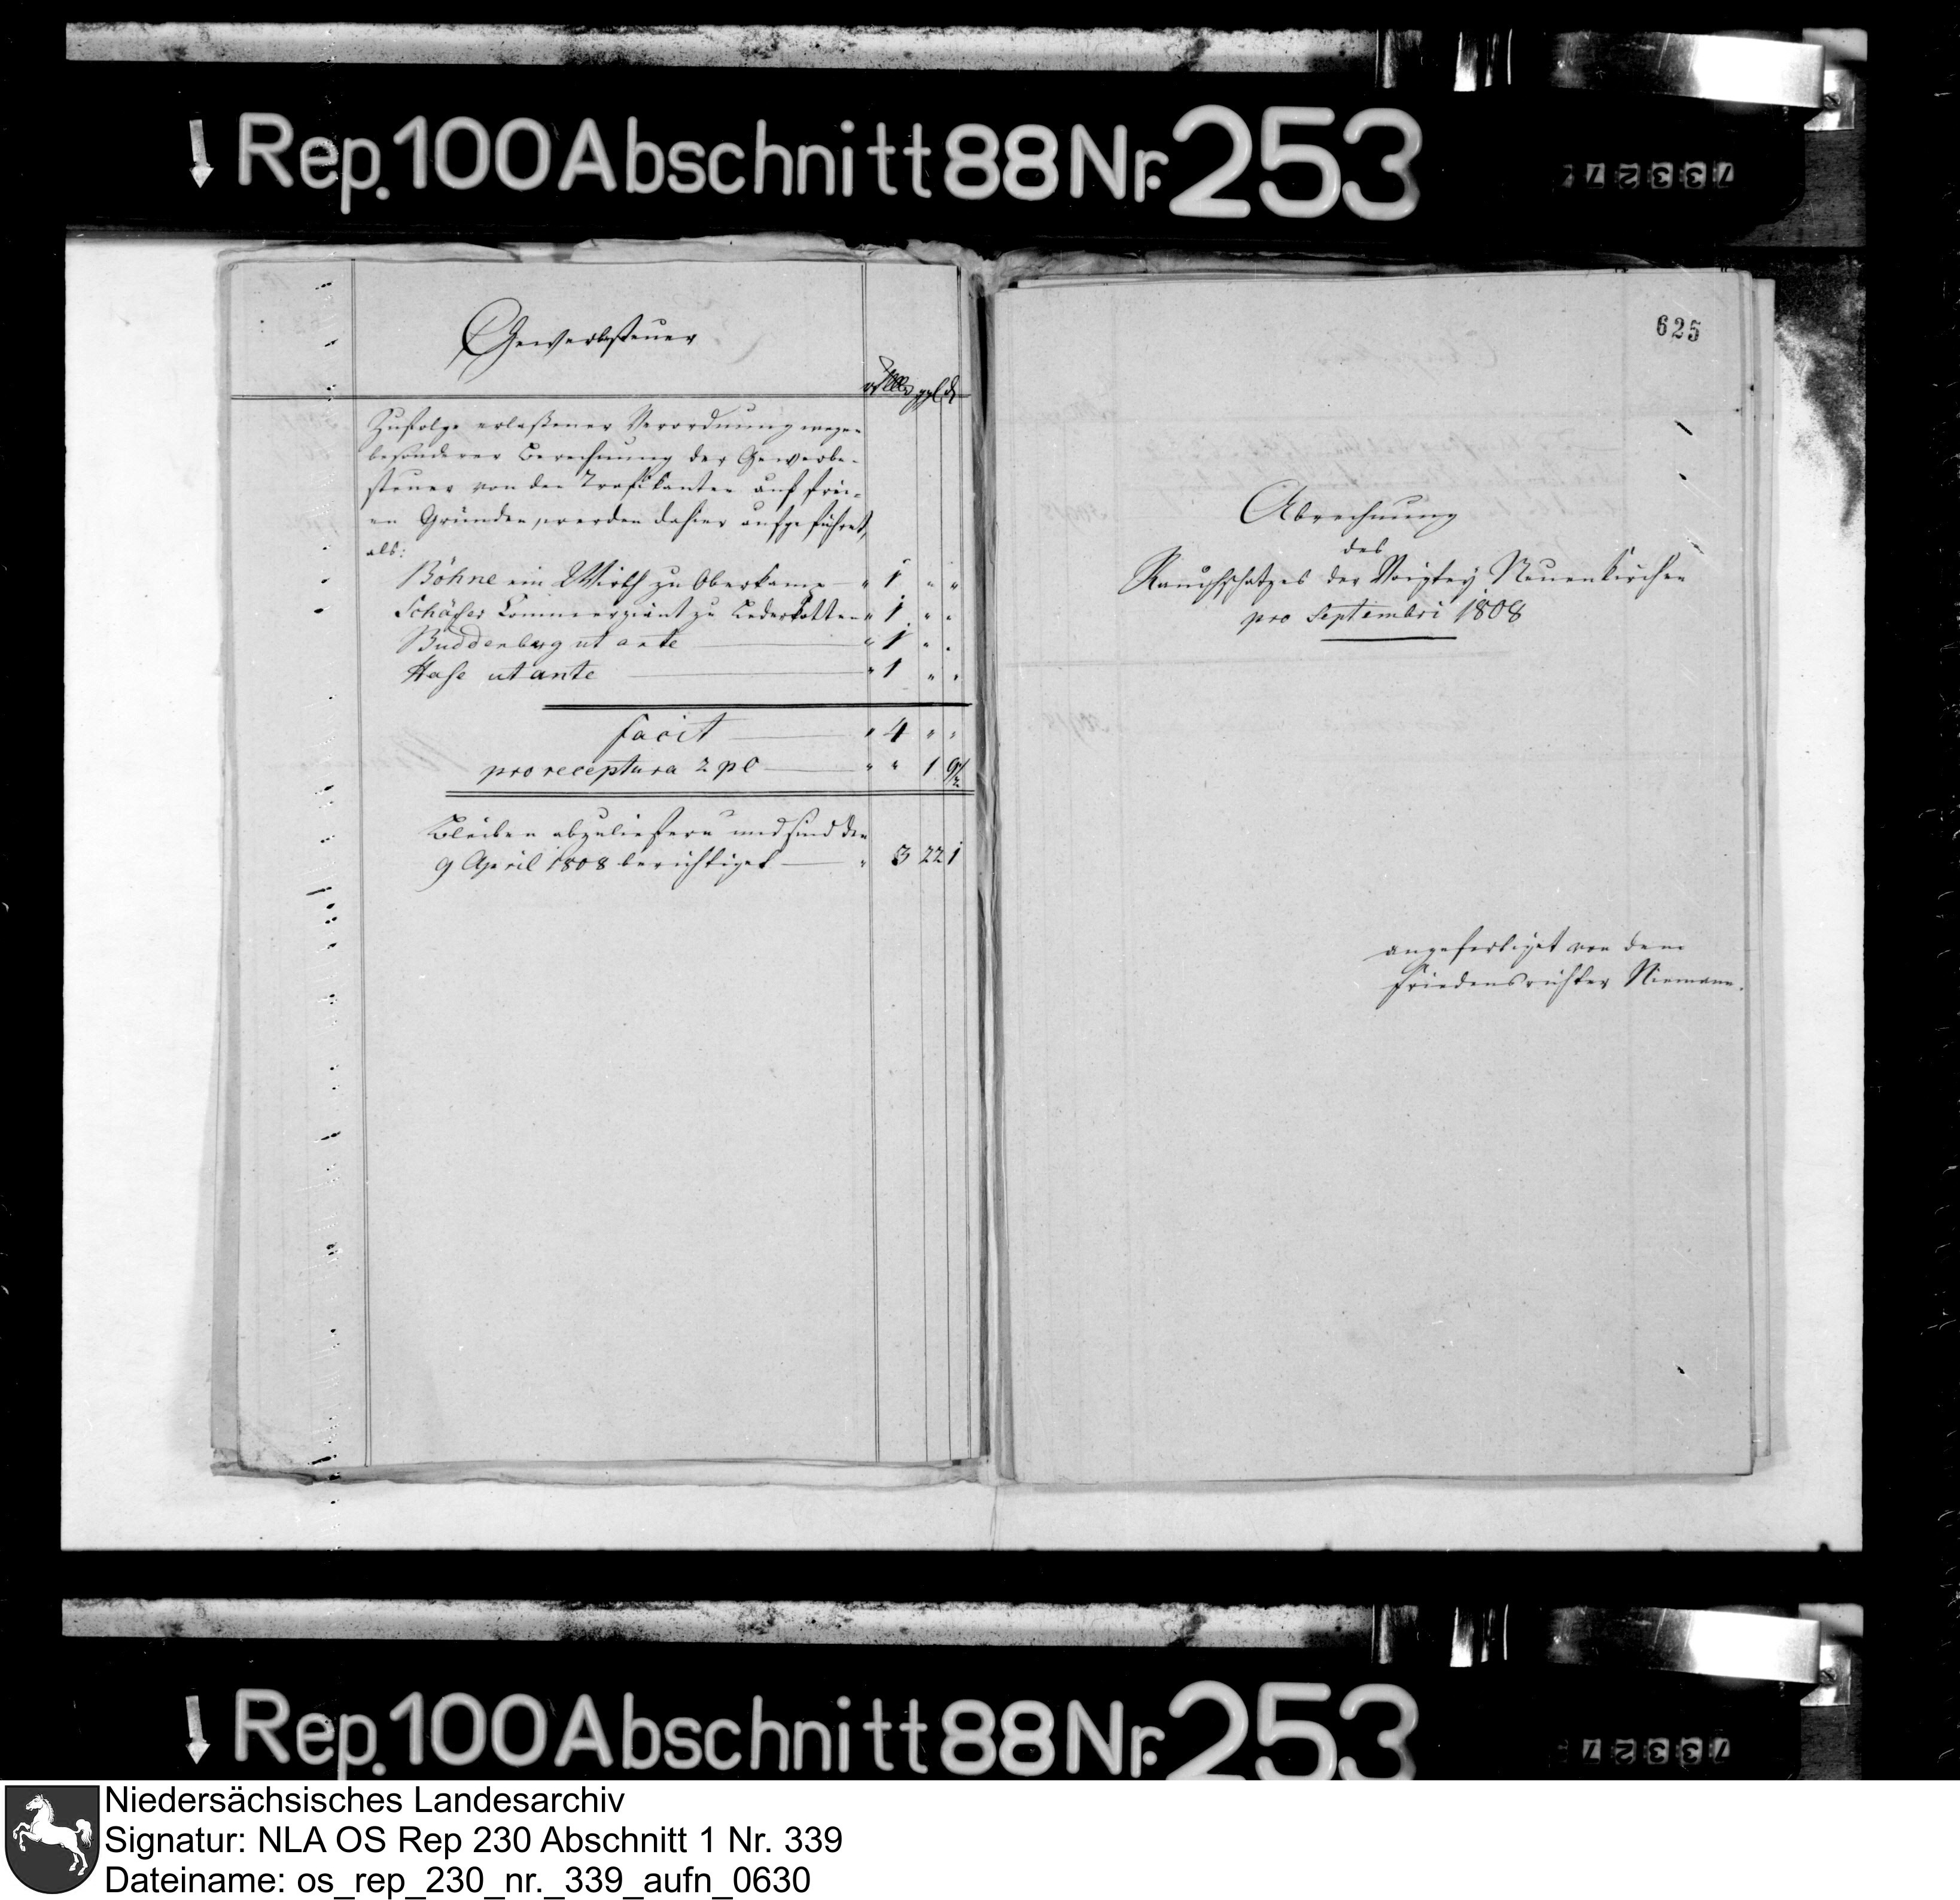 Rep. 100 Abschnitt 88 Nr. 253
73327
Gewerbesteuer
ggl ₰
Zufolge erlaßener Verordnung wege-
besonderer Berechnung der Gewerbe-
steuer von den Trafikanten auf frei-
en Gründen, werden dahier aufgeführet,
als:
Böhne ein Wirth zu Oberkamp — " 1 " "
Schäfer Commerziant zu Lederkotten " 1 " "
Buddenberg ut ante — " 1 " "
Hase ut ante — " 1 " "
facit — " 4 " "
pro receptura 2 pC — " " 1 9/
Bleiben abzuliefern und sind den
9 April 1808 berichtiget — " 3 22 1
625
Abrechnung
des
Rauchschatzes der Voigtey Neuenkirchen
pro Septembri 1808
angefertiget von dem
Friedensrichter Niemann.
Rep. 100 Abschnitt 88 Nr. 253
73327
Niedersächsisches Landesarchiv
Signatur: NLA OS Rep 230 Abschnitt 1 Nr. 339
Dateiname: os_rep_230_nr._339_aufn_0630